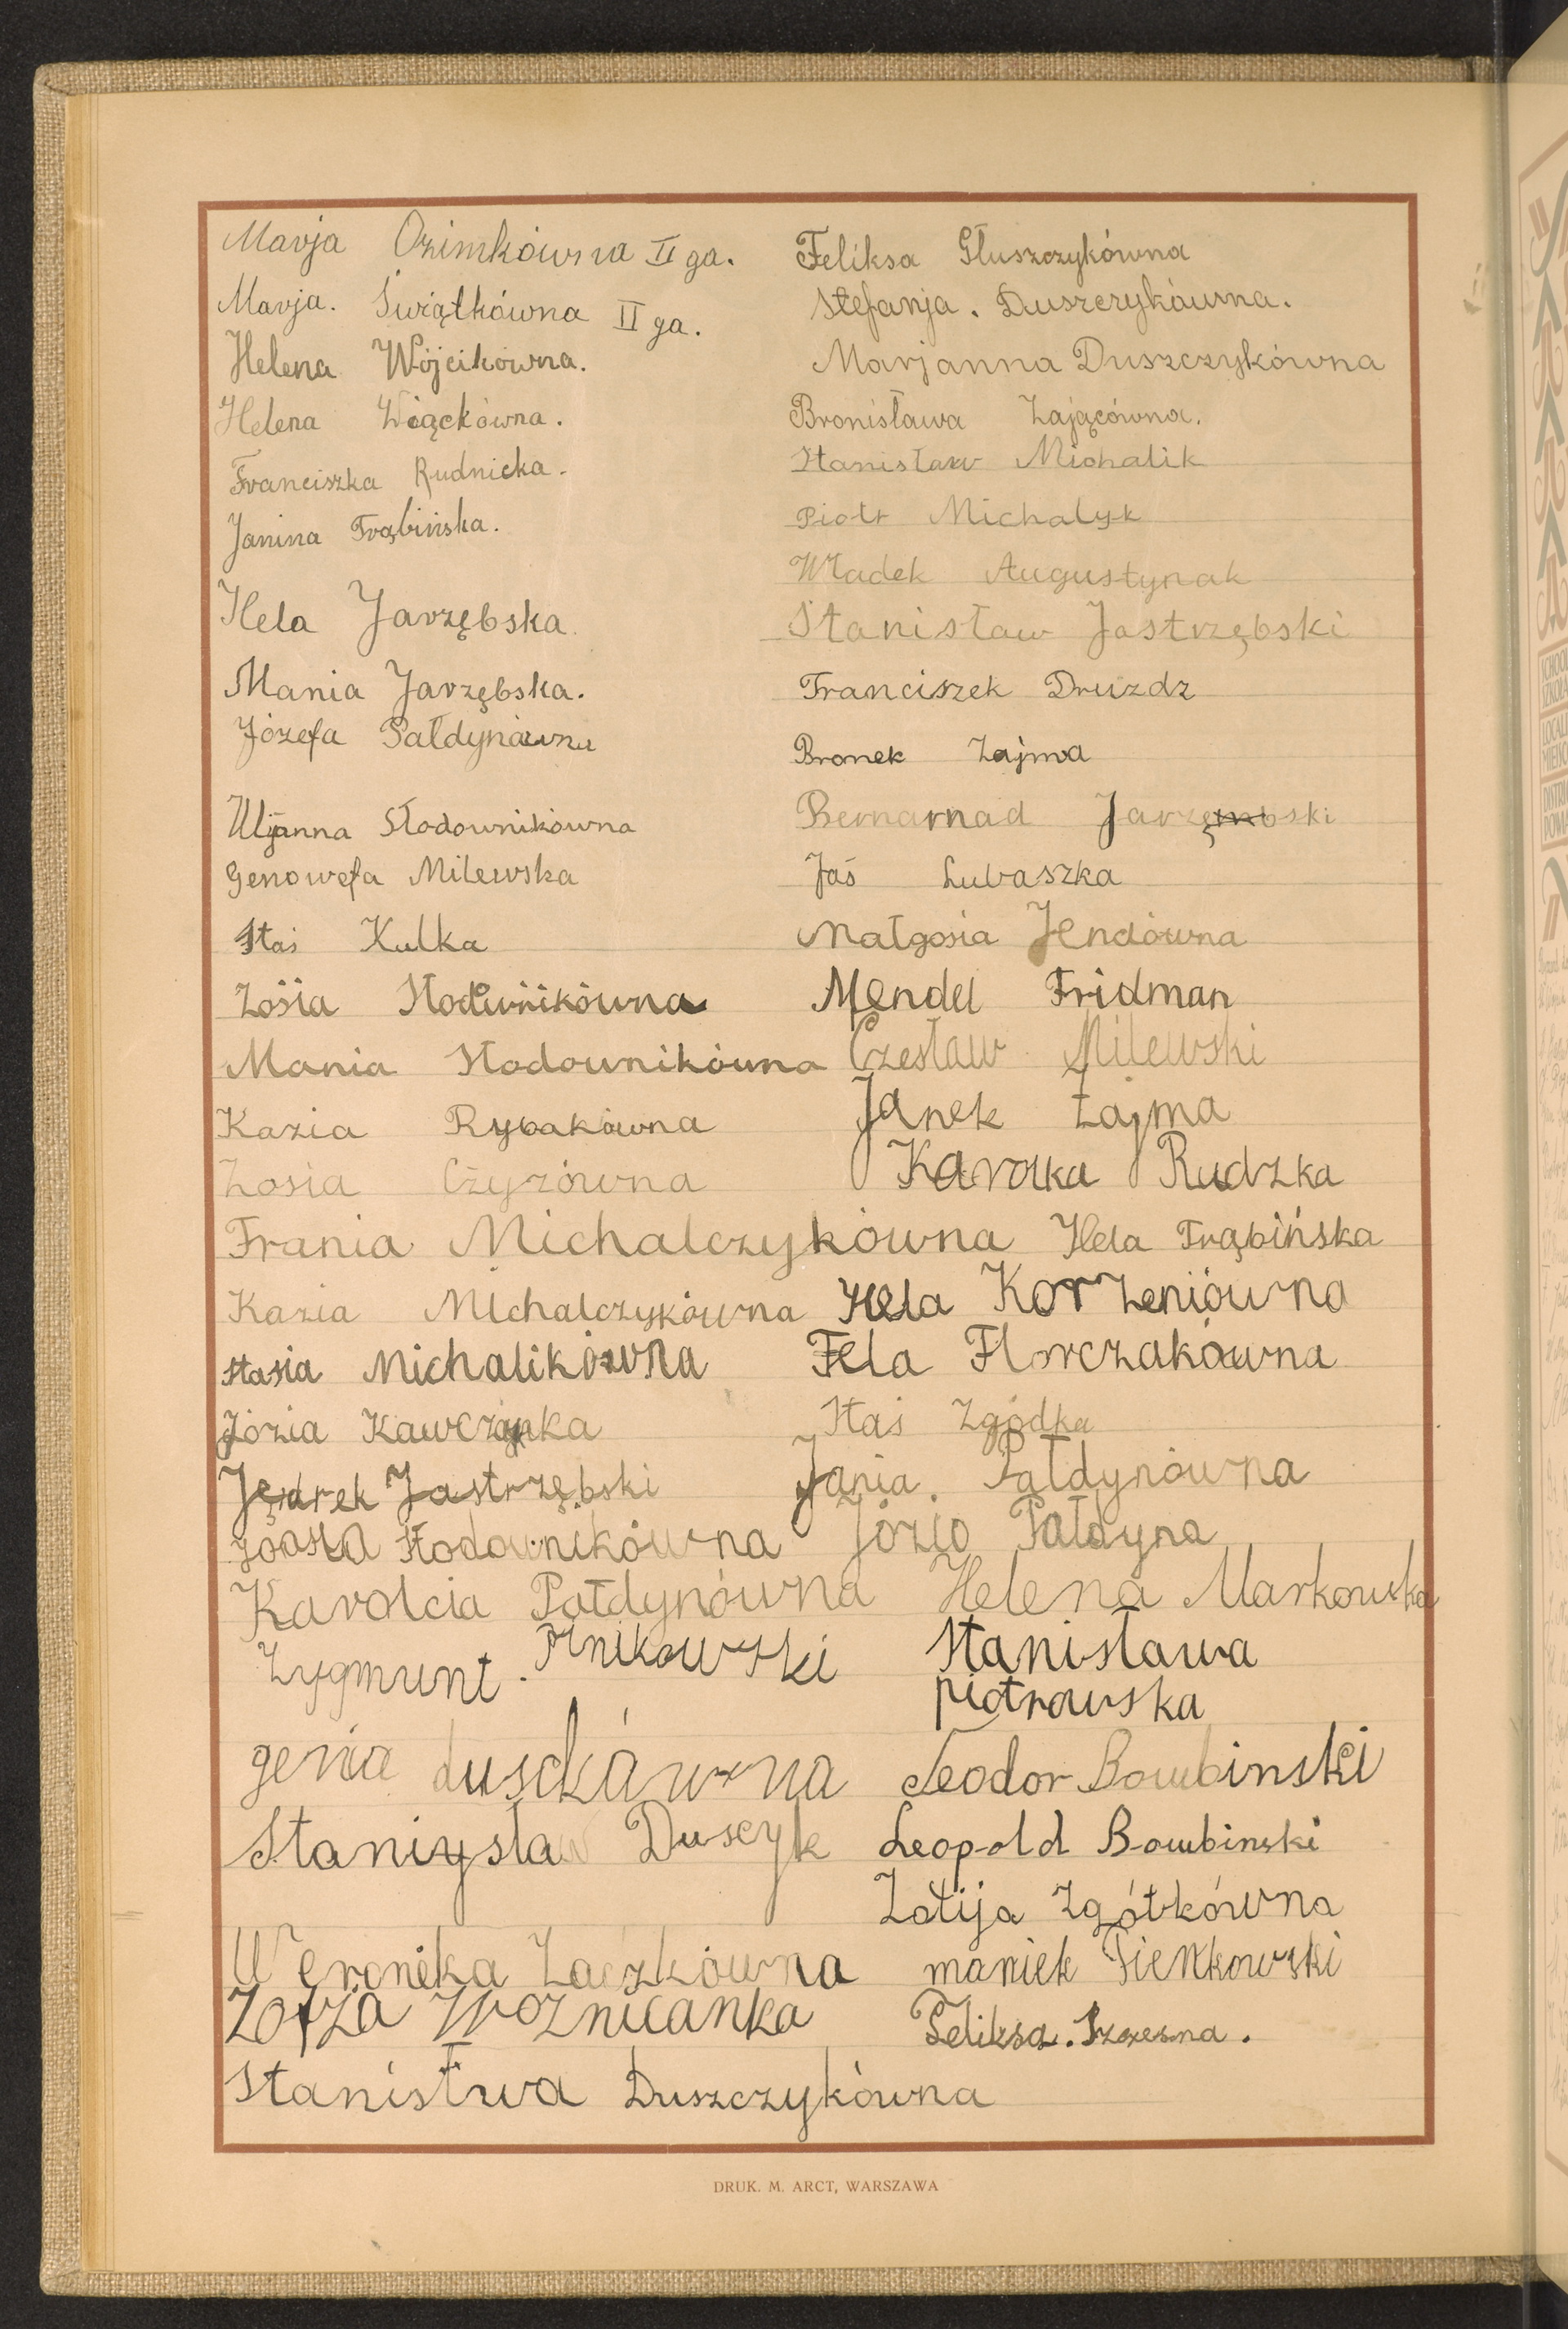 Marja Ozimkówna II ga.
Marja. Świątkówna II ga.
Helena Wójcikówna.
Helena Wiąckówna.
Franciszka Rudnicka.
Janina Trąbińska.
Hela Jarzębska.
Mania Jarzębska.
Józefa Pałdynówna
Uljanna Słodownikówna
Genowefa Milewska
Staś Kulka
Zosia Słodownikówna
Mania Słodownikówna
Kazia Rybakówna
Zosia Czyżówna
Frania Michalczykówna
Kazia Michalczykówna
Stasia Michalikówna
Józia Kawczanka
Jędrek Jastrzębski
Słodownikówna
Karolcia Pałdynówna
Zygmunt
genia
Staniysław Duscyk
Weronika
Zofża Woznicanka
Stanisłwa Duszczykówna
Feliksa Głuszczykówna
Stefanja. Duszczykówna.
Marjanna Duszczykówna
Bronisława Zającówna.
Stanisław Michalik
Piotr Michalyk
Władek Augustynak
Stanisław Jastrzębski
Franciszek Druzdz
Bronek Zajma
Bernarnad Jarzębski
Jaś Lubaszka
Małgosia Jendówna
Mendel Fridman
Czesław Milewski
Janek Zajma
Karolka Rudzka
Hela Trąbińska
Hela Korzeniówna
Fela Florczakówna
Staś Zgódka
Jania. Pałdynówna
Józio Pałdyna
Helena Markowska
Stanisława
piotrowska
Teodor Bombinski
Leopold Bombinski
Zofija Zgótkówna
maniek Pienkowski
Feliksa. Szczesna.
DRUK. M. ARCT, WARSZAWA